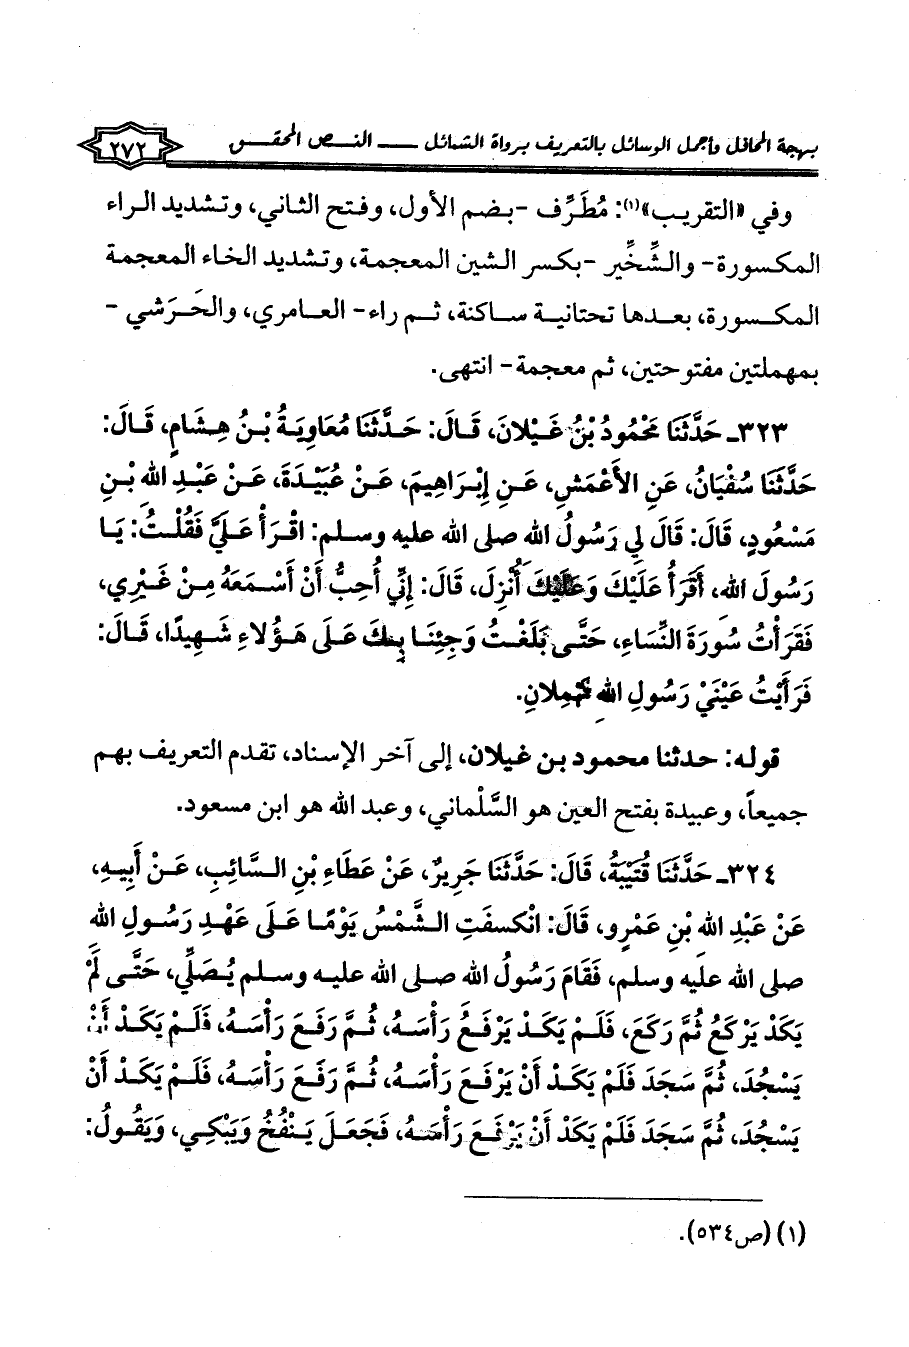 بهجة المحافل وأجمل الوسائل بالتعريف برواة الشمائل ـــ النـص المحقـق ٢٧٢
وفي «التقريب»(١): مُطَرِّف -بضم الأول، وفتح الثاني، وتشديد الراء
المكسورة- والشِّخِّير -بكسر الشين المعجمة، وتشديد الخاء المعجمة
المكسورة، بعدها تحتانية ساكنة، ثم راء- العامري، والحَرَشي -
بمهملتين مفتوحتين، ثم معجمة- انتهى.
٣٢٣ـ حَدَّثَنَا مَحْمُودُ بْنُ غَيْلانَ، قَالَ: حَدَّثَنَا مُعَاوِيَةُ بْنُ هِشَامٍ، قَالَ:
حَدَّثَنَا سُفْيَانُ، عَنِ الأَعْمَشِ، عَنِ إِبْرَاهِيمَ، عَنْ عُبَيْدَةَ، عَنْ عَبْدِ اللهِ بْنِ
مَسْعُودٍ، قَالَ: قَالَ لِي رَسُولُ اللهِ صلى الله عليه وسلم: اقْرَأْ عَلَيَّ فَقُلْتُ: يَا
رَسُولَ اللهِ، أَقَرَأُ عَلَيْكَ وَعَلَيْكَ أُنْزِلَ، قَالَ: إِنِّي أُحِبُّ أَنْ أَسْمَعَهُ مِنْ غَيْرِي،
فَقَرَأْتُ سُورَةَ النِّسَاءِ، حَتَّى بَلَغْتُ وَجِئِنَا بِكَ عَلَى هَؤُلاءِ شَهِيدًا، قَالَ:
فَرَأَيْتُ عَيْنَيْ رَسُولِ اللهِ تَهْمِلانِ.
قوله: حدثنا محمود بن غيلان، إلى آخر الإسناد، تقدم التعريف بهم
جميعاً، وعبيدة بفتح العين هو السَّلْماني، وعبد الله هو ابن مسعود.
٣٢٤ـ حَدَّثَنَا قُتَيْبَةُ، قَالَ: حَدَّثَنَا جَرِيرٌ، عَنْ عَطَاءِ بْنِ السَّائِبِ، عَنْ أَبِيهِ،
عَنْ عَبْدِ اللهِ بْنِ عَمْرٍو، قَالَ: انْكسفَتِ الشَّمْسُ يَوْمًا عَلَى عَهْدِ رَسُولِ اللهِ
صلى الله عليه وسلم، فَقَامَ رَسُولُ اللهِ صلى الله عليه وسلم يُصَلِّي، حَتَّى لَمْ
يَكَدْ يَرْكَعُ ثُمَّ رَكَعَ، فَلَمْ يَكَدْ يَرْفَعُ رَأْسَهُ، ثُمَّ رَفَعَ رَأْسَهُ، فَلَمْ يَكَدْ أَنْ
يَسْجُدَ، ثُمَّ سَجَدَ فَلَمْ يَكَدْ أَنْ يَرْفَعَ رَأْسَهُ، ثُمَّ رَفَعَ رَأْسَهُ، فَلَمْ يَكَدْ أَنْ
يَسْجُدَ، ثُمَّ سَجَدَ فَلَمْ يَكَدْ أَنْ يَرْفَعَ رَأْسَهُ، فَجَعَلَ يَنْفُخُ وَيَبْكِي، وَيَقُولُ:
(١) (ص٥٣٤).